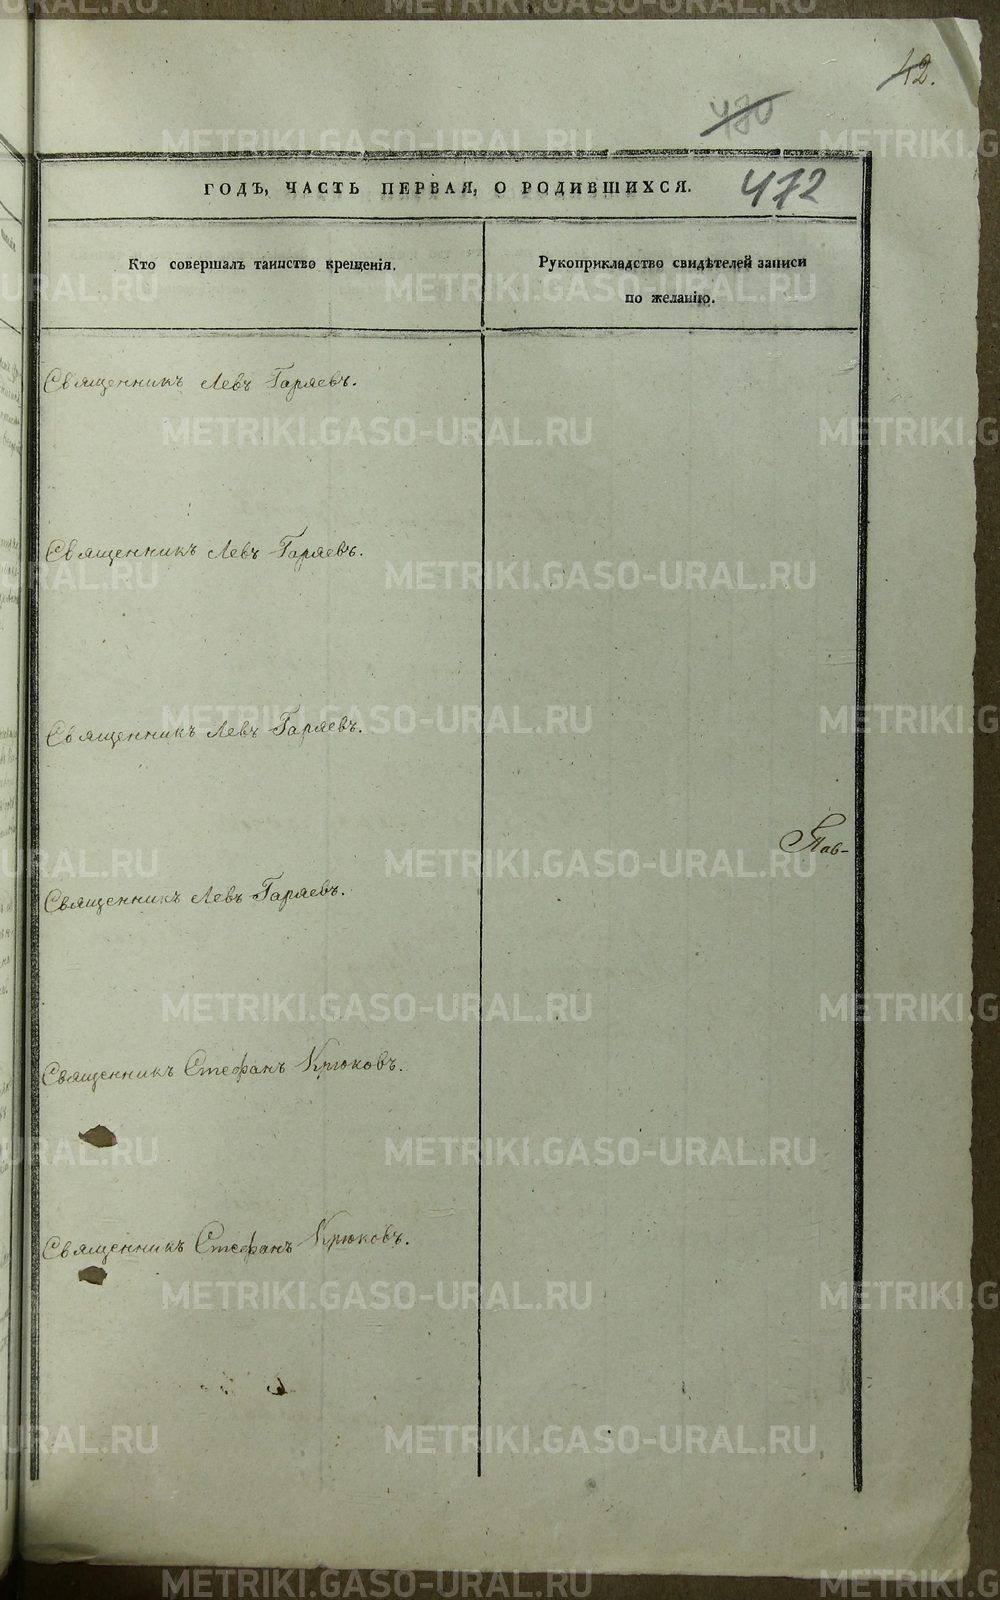 42.
480
472
ГОДЪ, ЧАСТЬ ПЕРВАЯ, О РОДИВШИХСЯ.
Кто совершалъ таинство крещенія.
Рукоприкладство свидѣтелей записи
по желанію.
Священникъ Левъ Гаряевъ.
Священникъ Левъ Гаряевъ.
Священникъ Левъ Гаряевъ.
Пав-
Священникъ Левъ Гаряевъ.
Священникъ Стефанъ Крюковъ.
Священникъ Стефанъ Крюковъ.
METRIKI.GASO-URAL.RU